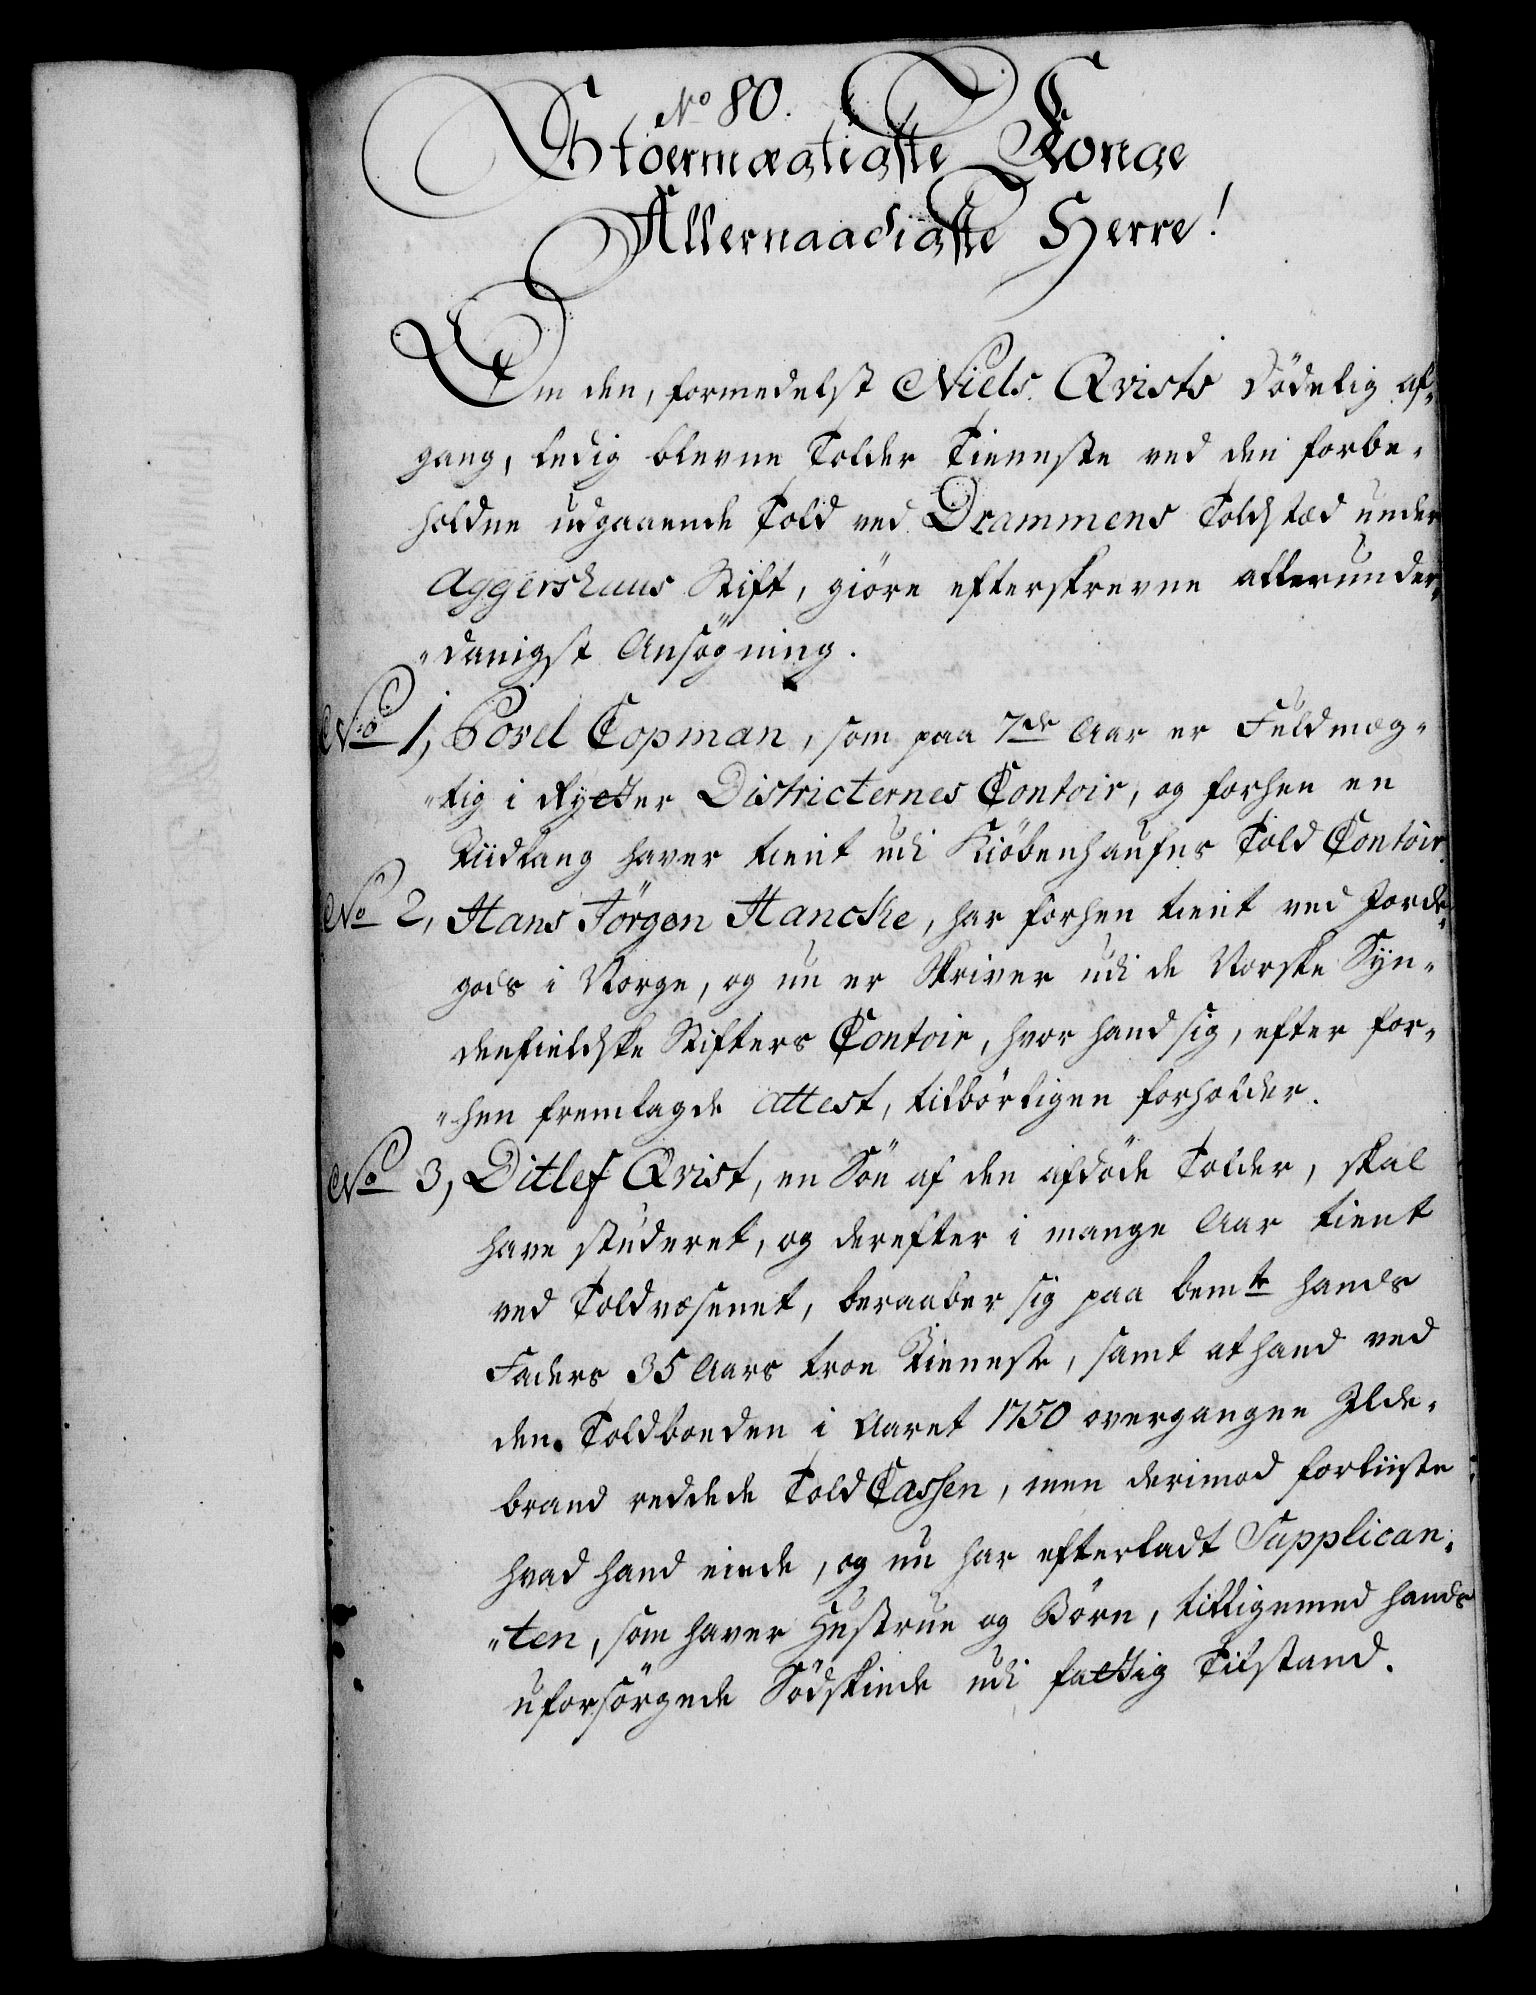 No 80.
Stoermægtigste Konge
Allernaadigste Herre!
Om den, formedelst Niels Qvists dödelig af-
gang, ledig blevne Tolder Tieneste ved den forbe-
holdne udgaaende Told ved Drammens Toldstæd under
Aggershuus Stift, giöre efterskrevne allerunder-
"danigst Ansögning.
No 1, Povel Copman, som paa 7de Aar er Fuldmæg-
"tig i Rytter Districternes Contoir, og forhen en
Tiidlang haver tient udi Kiöbenhaufns Told Contoir.
No 2, Hans Jörgen Hancke, har forhen tient ved Jorde-
gods i Norge, og nu er Skriver udi de Norske Syn-
denfieldske Stifters Contoir, hvor hand sig, efter for-
"hen fremlagde Attest, tilbörligen forholder.
No 3, Ditlef Qvist, en Sön af den afdöde Tolder, skal
have studeret, og derefter i mange Aar tient
ved Toldvæsenet, beraaber sig paa bemte hands
Faders 35 Aars troe Tieneste, samt at hand ved
den Toldboeden i Aaret 1750 overgangne Ilde-
brand reddede Told Cassen, men derimod forliiste
hvad hand eiede, og nu har efterladt Supplican-
"ten, som haver Hustrue og Börn, tilligemed hands
uforsörgede Södskiende udi fattig Tilstand.